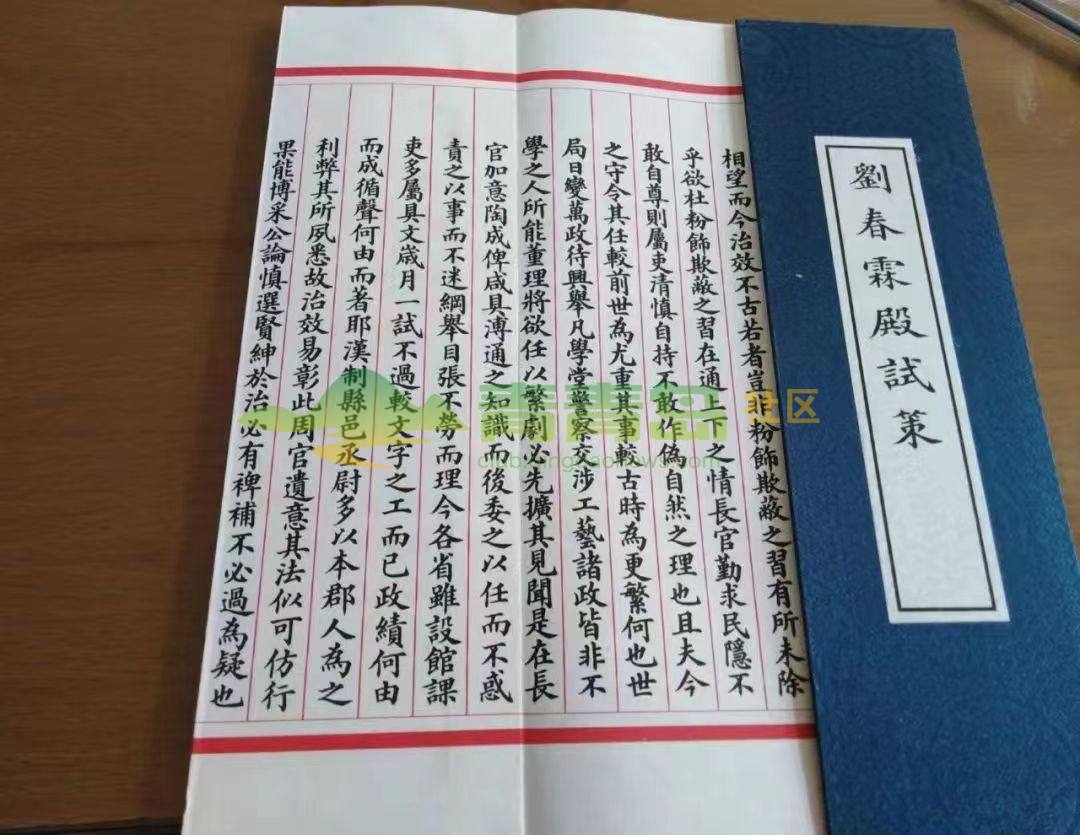 劉春霖殿試策
相望而今治效不古若者豈粉飾欺蔽之習有所未除
乎欲杜粉飾欺蔽之習在通上下之情長官勤求民隱不
敢自尊則屬吏清慎自持不敢作偽自然之理也且夫今
之守令其任較前世為尤重其事較古時為更繁何也世
局日變萬政待興舉凡學堂警察交涉工藝諸政皆非不
學之人所能董理將欲任以繁劇必先擴其見聞是在長
官加意陶成俾咸具溥通之知識而後委之以任而不惑
責之以事而不迷綱舉目張不勞而理今各省雖設館課
吏多屬具文歲月一試不過較文字之工而已政績何由
而成循聲何由而著耶漢制縣邑丞尉多以本郡人為之
利弊其所夙悉故治效易彰此周官遺意其法似可仿行
果能博采公論慎選賢紳於治必有裨補不必過為疑也
青青岛社区